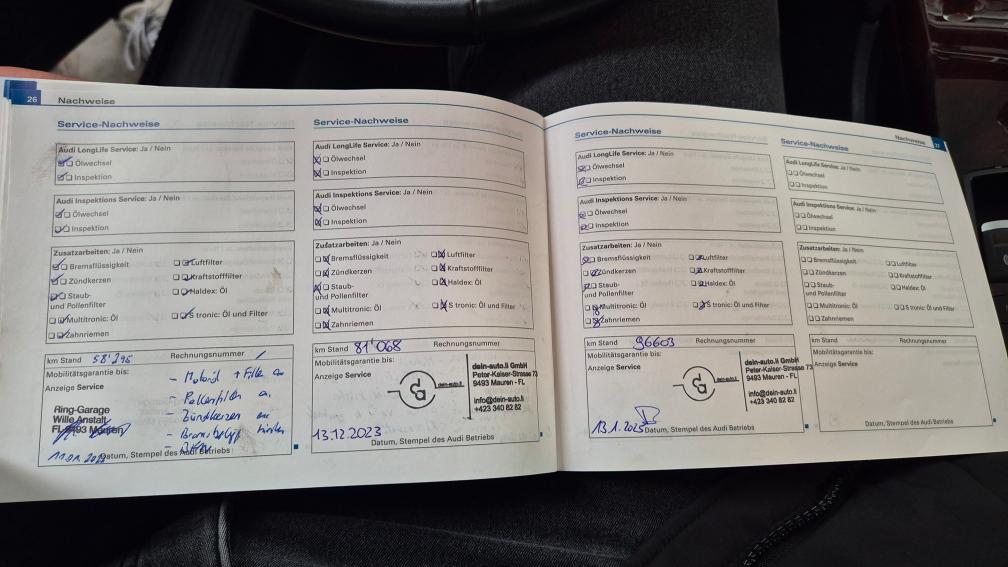 26
Nachweise
Service-Nachweise
Audi LongLife Service: Ja / Nein
Ölwechsel
Inspektion
Audi Inspektions Service: Ja / Nein
Ölwechsel
Inspektion
Zusatzarbeiten: Ja / Nein
Bremsflüssigkeit
Luftfilter
Zündkerzen
Kraftstofffilter
Staub-
und Pollenfilter
Haldex: Öl
Multitronic: Öl
S tronic: Öl und Filter
Zahnriemen
km Stand 58'295 Rechnungsnummer /
Mobilitätsgarantie bis:
Anzeige Service
- Motoröl + Filter
- Pollenfilter
- Zündkerzen
Ring-Garage
Wille Anstalt
FL-9493 Mauren
Datum, Stempel des Audi Betriebs
Service-Nachweise
Audi LongLife Service: Ja / Nein
Ölwechsel
Inspektion
Audi Inspektions Service: Ja / Nein
Ölwechsel
Inspektion
Zusatzarbeiten: Ja / Nein
Bremsflüssigkeit
Luftfilter
Zündkerzen
Kraftstofffilter
Staub-
und Pollenfilter
Haldex: Öl
Multitronic: Öl
S tronic: Öl und Filter
Zahnriemen
km Stand 81'068 Rechnungsnummer
Mobilitätsgarantie bis:
Anzeige Service
da dein-auto.li
dein-auto.li GmbH
Peter-Kaiser-Strasse 73
9493 Mauren - FL
info@dein-auto.li
+423 340 82 82
13.12.2023
Datum, Stempel des Audi Betriebs
Nachweise
27
Service-Nachweise
Audi LongLife Service: Ja / Nein
Ölwechsel
Inspektion
Audi Inspektions Service: Ja / Nein
Ölwechsel
Inspektion
Zusatzarbeiten: Ja / Nein
Bremsflüssigkeit
Luftfilter
Zündkerzen
Kraftstofffilter
Staub-
und Pollenfilter
Haldex: Öl
Multitronic: Öl
S tronic: Öl und Filter
Zahnriemen
km Stand 96603 Rechnungsnummer
Mobilitätsgarantie bis:
Anzeige Service
da dein-auto.li
dein-auto.li GmbH
Peter-Kaiser-Strasse 73
9493 Mauren - FL
info@dein-auto.li
+423 340 82 82
13.1.2025
Datum, Stempel des Audi Betriebs
Service-Nachweise
Audi LongLife Service: Ja / Nein
Ölwechsel
Inspektion
Audi Inspektions Service: Ja / Nein
Ölwechsel
Inspektion
Zusatzarbeiten: Ja / Nein
Bremsflüssigkeit
Luftfilter
Zündkerzen
Kraftstofffilter
Staub-
und Pollenfilter
Haldex: Öl
Multitronic: Öl
S tronic: Öl und Filter
Zahnriemen
km Stand Rechnungsnummer
Mobilitätsgarantie bis:
Anzeige Service
Datum, Stempel des Audi Betriebs